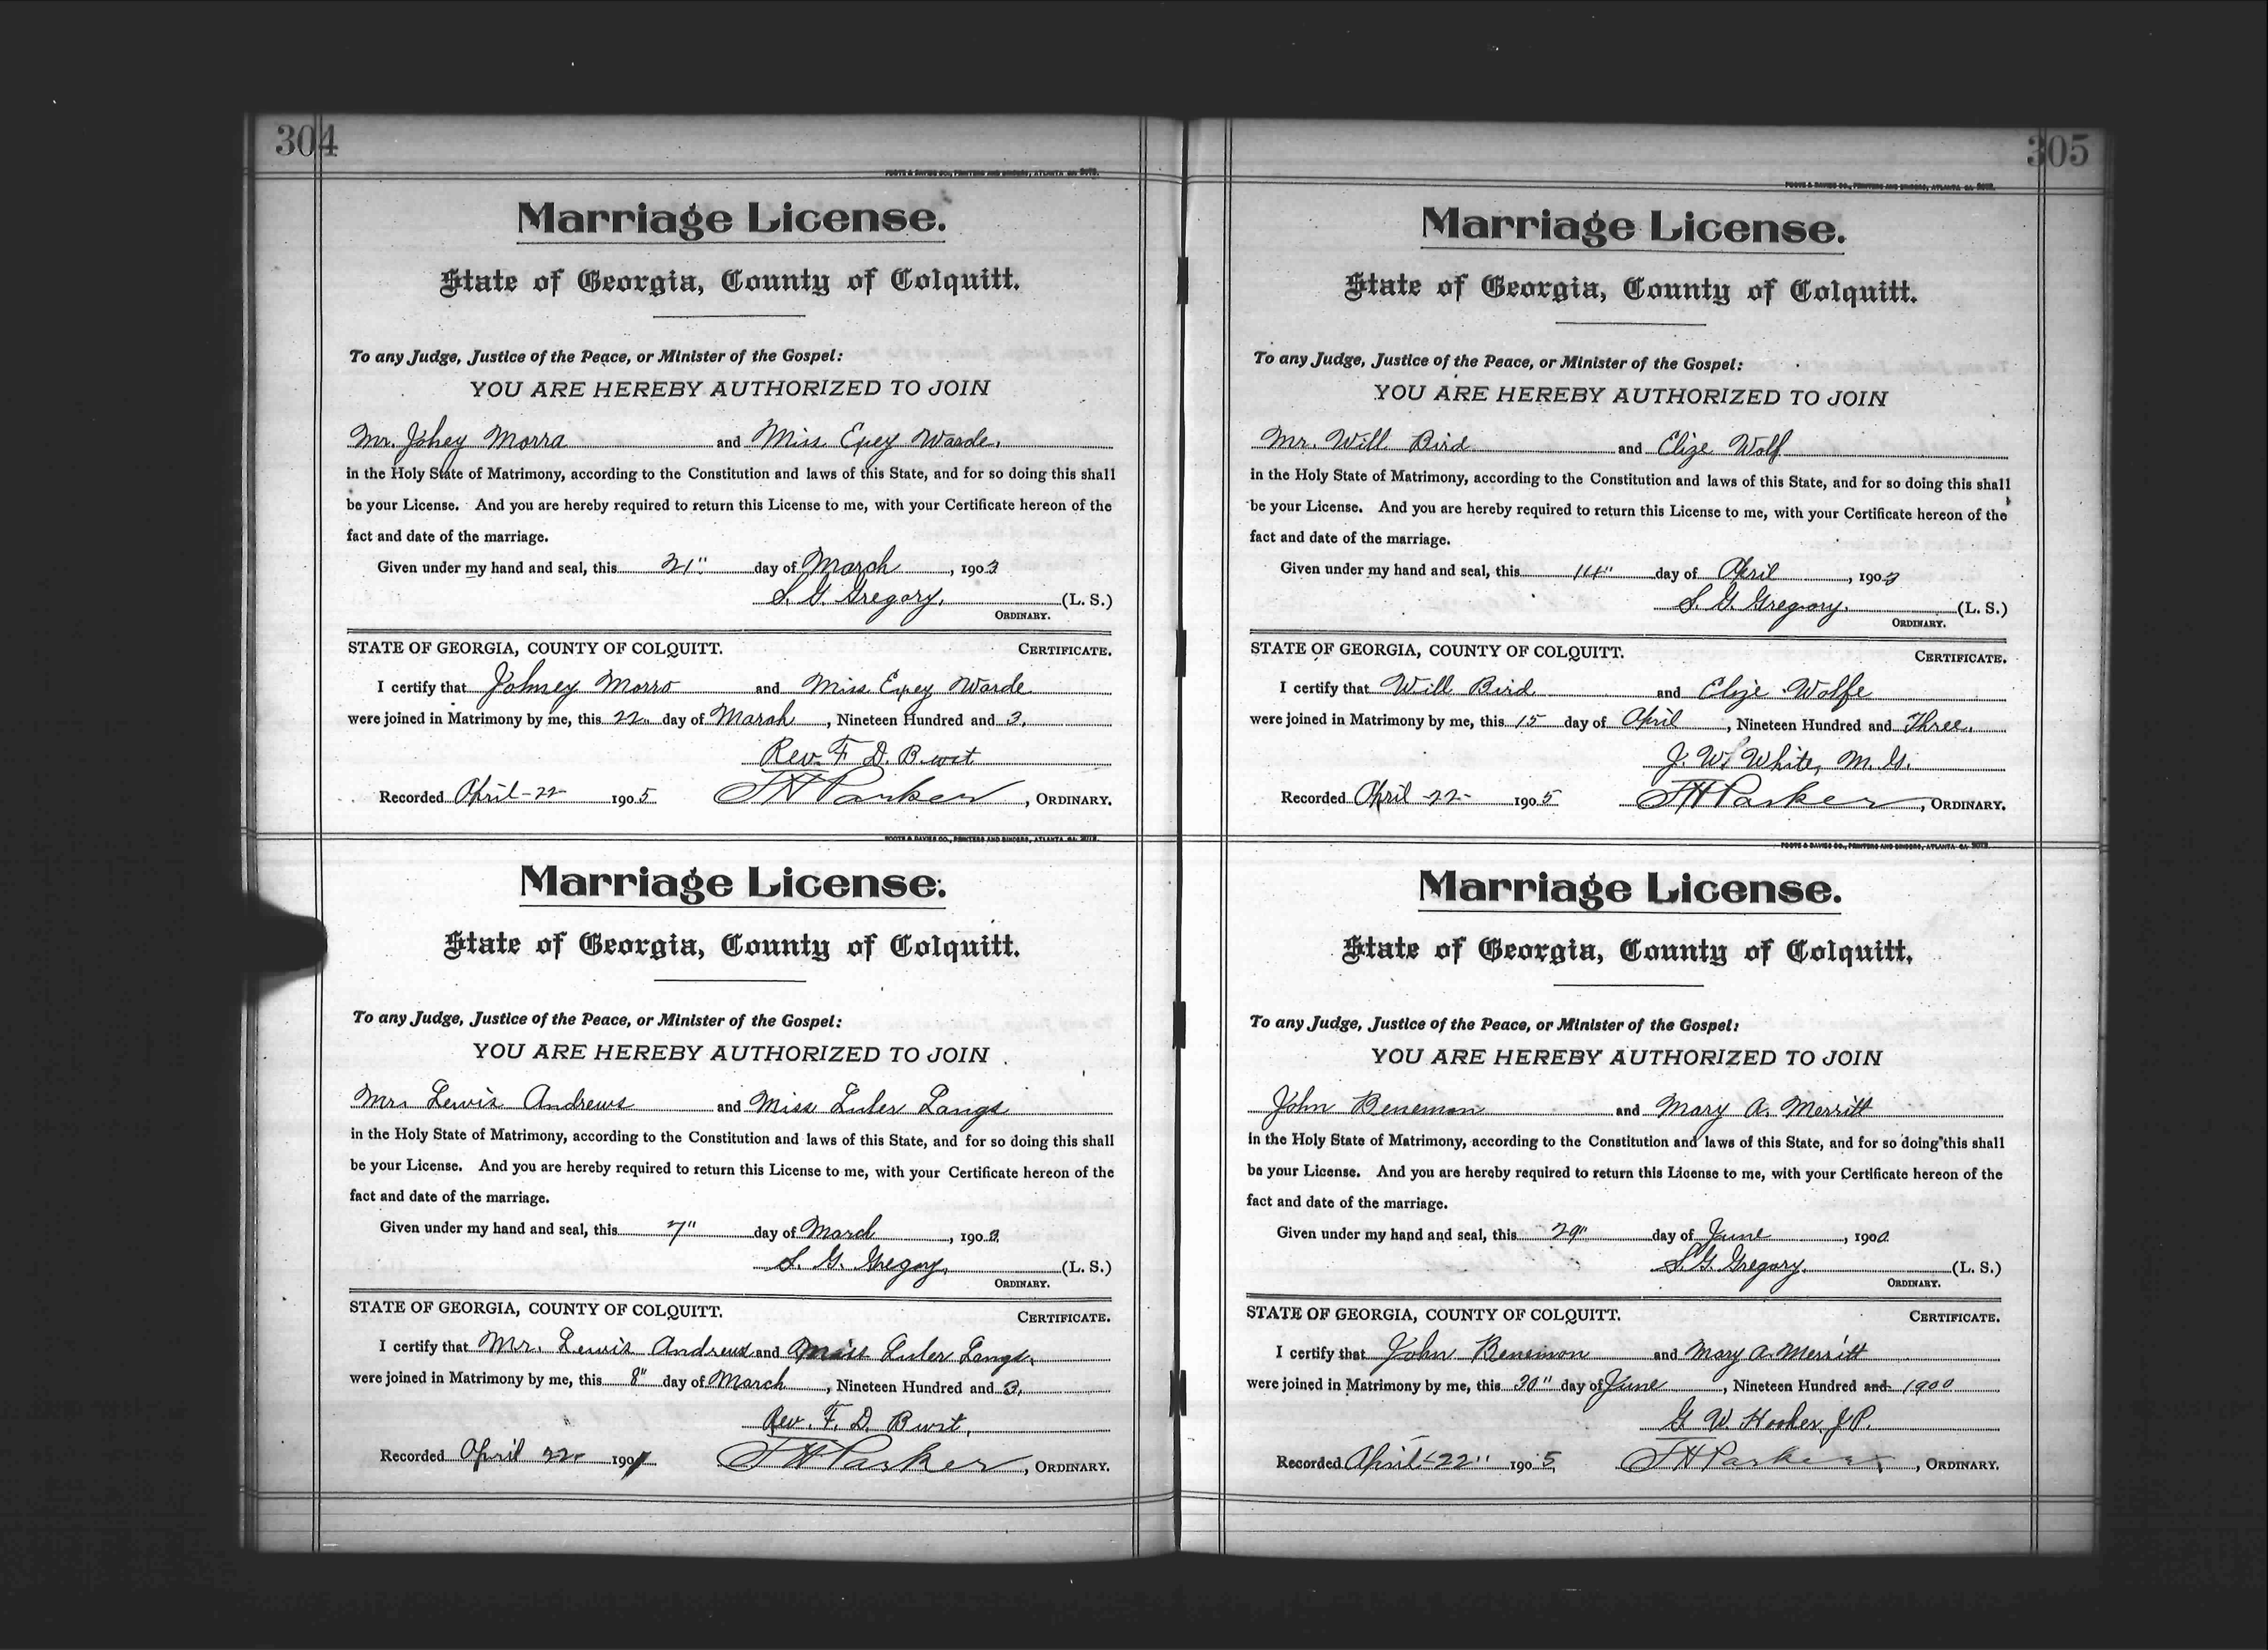 304
FOOTE & DAVIES CO., PRINTERS AND BINDERS, ATLANTA GA.
Marriage License.
State of Georgia, County of Colquitt.
To any Judge, Justice of the Peace, or Minister of the Gospel:
YOU ARE HEREBY AUTHORIZED TO JOIN
Mr. Johey Morra and Miss Epey Warde.
in the Holy State of Matrimony, according to the Constitution and laws of this State, and for so doing this shall
be your License. And you are hereby required to return this License to me, with your Certificate hereon of the
fact and date of the marriage.
Given under my hand and seal, this 21" day of March, 1903
S. G. Gregory. (L. S.)
ORDINARY.
STATE OF GEORGIA, COUNTY OF COLQUITT. CERTIFICATE.
I certify that Johney Morro and Miss Epey Warde
were joined in Matrimony by me, this 22" day of March, Nineteen Hundred and 3.
Rev. F. D. Burst
Recorded April-22- 1905 J H Parker, ORDINARY.
FOOTE & DAVIES CO., PRINTERS AND BINDERS, ATLANTA GA.
Marriage License.
State of Georgia, County of Colquitt.
To any Judge, Justice of the Peace, or Minister of the Gospel:
YOU ARE HEREBY AUTHORIZED TO JOIN
Mr. Lewis Andrews and Miss Luler Langs
in the Holy State of Matrimony, according to the Constitution and laws of this State, and for so doing this shall
be your License. And you are hereby required to return this License to me, with your Certificate hereon of the
fact and date of the marriage.
Given under my hand and seal, this 7" day of March, 1903
S. G. Gregory, (L. S.)
ORDINARY.
STATE OF GEORGIA, COUNTY OF COLQUITT. CERTIFICATE.
I certify that Mr. Lewis Andrews and Miss Luler Langs.
were joined in Matrimony by me, this 8" day of March, Nineteen Hundred and 3.
Rev. F. D. Burst,
Recorded April 22- 190 J H Parker, ORDINARY.
305
FOOTE & DAVIES CO., PRINTERS AND BINDERS, ATLANTA GA.
Marriage License.
State of Georgia, County of Colquitt.
To any Judge, Justice of the Peace, or Minister of the Gospel:
YOU ARE HEREBY AUTHORIZED TO JOIN
Mr. Will Bird and Elize Wolf
in the Holy State of Matrimony, according to the Constitution and laws of this State, and for so doing this shall
be your License. And you are hereby required to return this License to me, with your Certificate hereon of the
fact and date of the marriage.
Given under my hand and seal, this 14" day of April, 1903
S. G. Gregory. (L. S.)
ORDINARY.
STATE OF GEORGIA, COUNTY OF COLQUITT. CERTIFICATE.
I certify that Will Bird and Elize Wolfe
were joined in Matrimony by me, this 15 day of April, Nineteen Hundred and Three.
J. W. White, M. G.
Recorded April -22- 1905 J H Parker, ORDINARY.
FOOTE & DAVIES CO., PRINTERS AND BINDERS, ATLANTA GA.
Marriage License.
State of Georgia, County of Colquitt.
To any Judge, Justice of the Peace, or Minister of the Gospel:
YOU ARE HEREBY AUTHORIZED TO JOIN
John Benemon and Mary A. Merritt
in the Holy State of Matrimony, according to the Constitution and laws of this State, and for so doing this shall
be your License. And you are hereby required to return this License to me, with your Certificate hereon of the
fact and date of the marriage.
Given under my hand and seal, this 29" day of June, 1900
S. G. Gregory. (L. S.)
ORDINARY.
STATE OF GEORGIA, COUNTY OF COLQUITT. CERTIFICATE.
I certify that John Benemon and Mary A. Merritt
were joined in Matrimony by me, this 30" day of June, Nineteen Hundred and 1900
G W Hooker, J P.
Recorded April-22" 1905 J H Parker, ORDINARY.